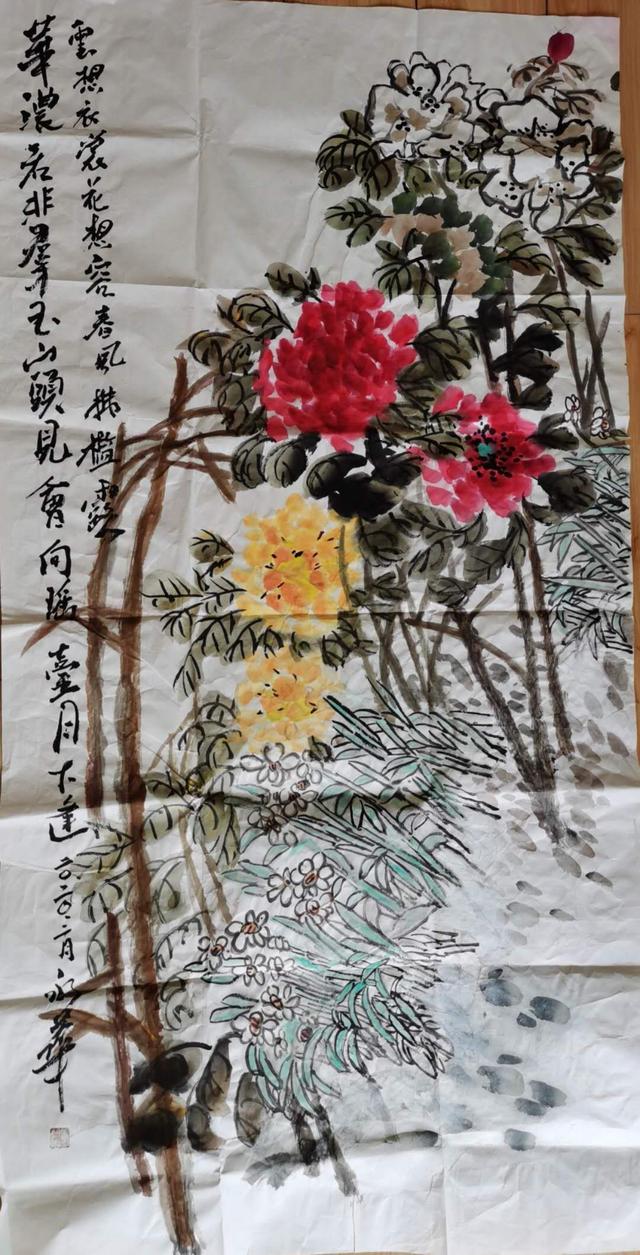 雲想衣裳花想容春風拂檻露
華濃若非羣玉山頭見會向瑤臺月下逢 永華